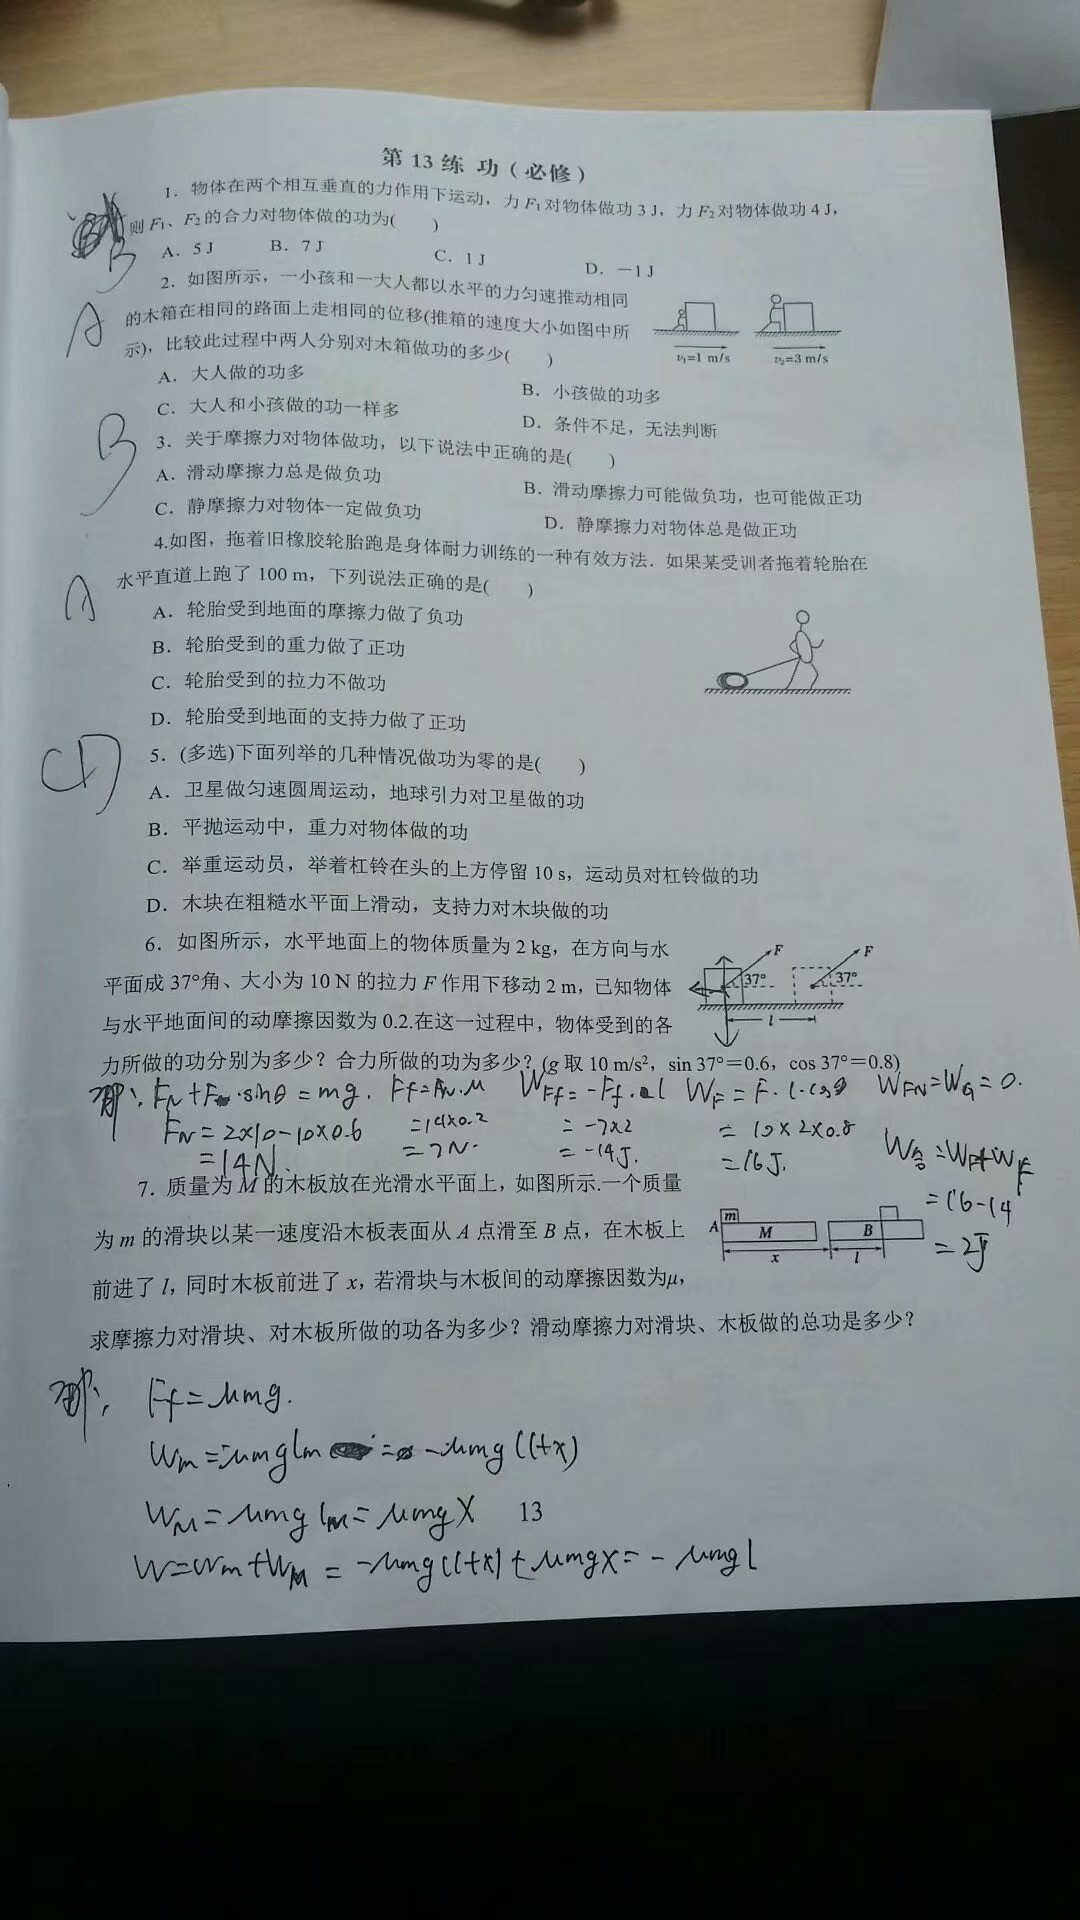 第 13 练 功（必修）
1．物体在两个相互垂直的力作用下运动，力 F₁对物体做功 3 J，力 F₂对物体做功 4 J，
则 F₁、F₂的合力对物体做的功为(　　)
B
A．5 J　B．7 J　C．1 J　D．－1 J
2．如图所示，一小孩和一大人都以水平的力匀速推动相同
的木箱在相同的路面上走相同的位移(推箱的速度大小如图中所
A
示)，比较此过程中两人分别对木箱做功的多少(　　)
v₁=1 m/s　v₂=3 m/s
A．大人做的功多　B．小孩做的功多
C．大人和小孩做的功一样多　D．条件不足，无法判断
B
3．关于摩擦力对物体做功，以下说法中正确的是(　　)
A．滑动摩擦力总是做负功　B．滑动摩擦力可能做负功，也可能做正功
C．静摩擦力对物体一定做负功　D．静摩擦力对物体总是做正功
4.如图，拖着旧橡胶轮胎跑是身体耐力训练的一种有效方法．如果某受训者拖着轮胎在
水平直道上跑了 100 m，下列说法正确的是(　　)
A
A．轮胎受到地面的摩擦力做了负功
B．轮胎受到的重力做了正功
C．轮胎受到的拉力不做功
D．轮胎受到地面的支持力做了正功
CD
5．(多选)下面列举的几种情况做功为零的是(　　)
A．卫星做匀速圆周运动，地球引力对卫星做的功
B．平抛运动中，重力对物体做的功
C．举重运动员，举着杠铃在头的上方停留 10 s，运动员对杠铃做的功
D．木块在粗糙水平面上滑动，支持力对木块做的功
6．如图所示，水平地面上的物体质量为 2 kg，在方向与水
平面成 37°角、大小为 10 N 的拉力 F 作用下移动 2 m，已知物体
F　37°　F　37°　l
与水平地面间的动摩擦因数为 0.2.在这一过程中，物体受到的各
力所做的功分别为多少？合力所做的功为多少？(g 取 10 m/s²，sin 37°＝0.6，cos 37°＝0.8)
FN+F·sinθ=mg.　Ff=FN·μ　WFf=-Ff·l　WF=F·l·cosθ　WFN=WG=0.
FN=2×10-10×0.6　=14×0.2　=-7×2　=10×2×0.8
=14N.　=7N.　=-14J.　=16J.
W合=WFf+WF
=16-14
=2J
7．质量为 M 的木板放在光滑水平面上，如图所示.一个质量
为 m 的滑块以某一速度沿木板表面从 A 点滑至 B 点，在木板上
A　m　M　B　x　l
前进了 l，同时木板前进了 x，若滑块与木板间的动摩擦因数为μ，
求摩擦力对滑块、对木板所做的功各为多少？滑动摩擦力对滑块、木板做的总功是多少？
Ff=μmg.
Wm=-μmglm=-μmg(l+x)
WM=μmglM=μmgx
13
W=Wm+WM=-μmg(l+x)+μmgx=-μmgl